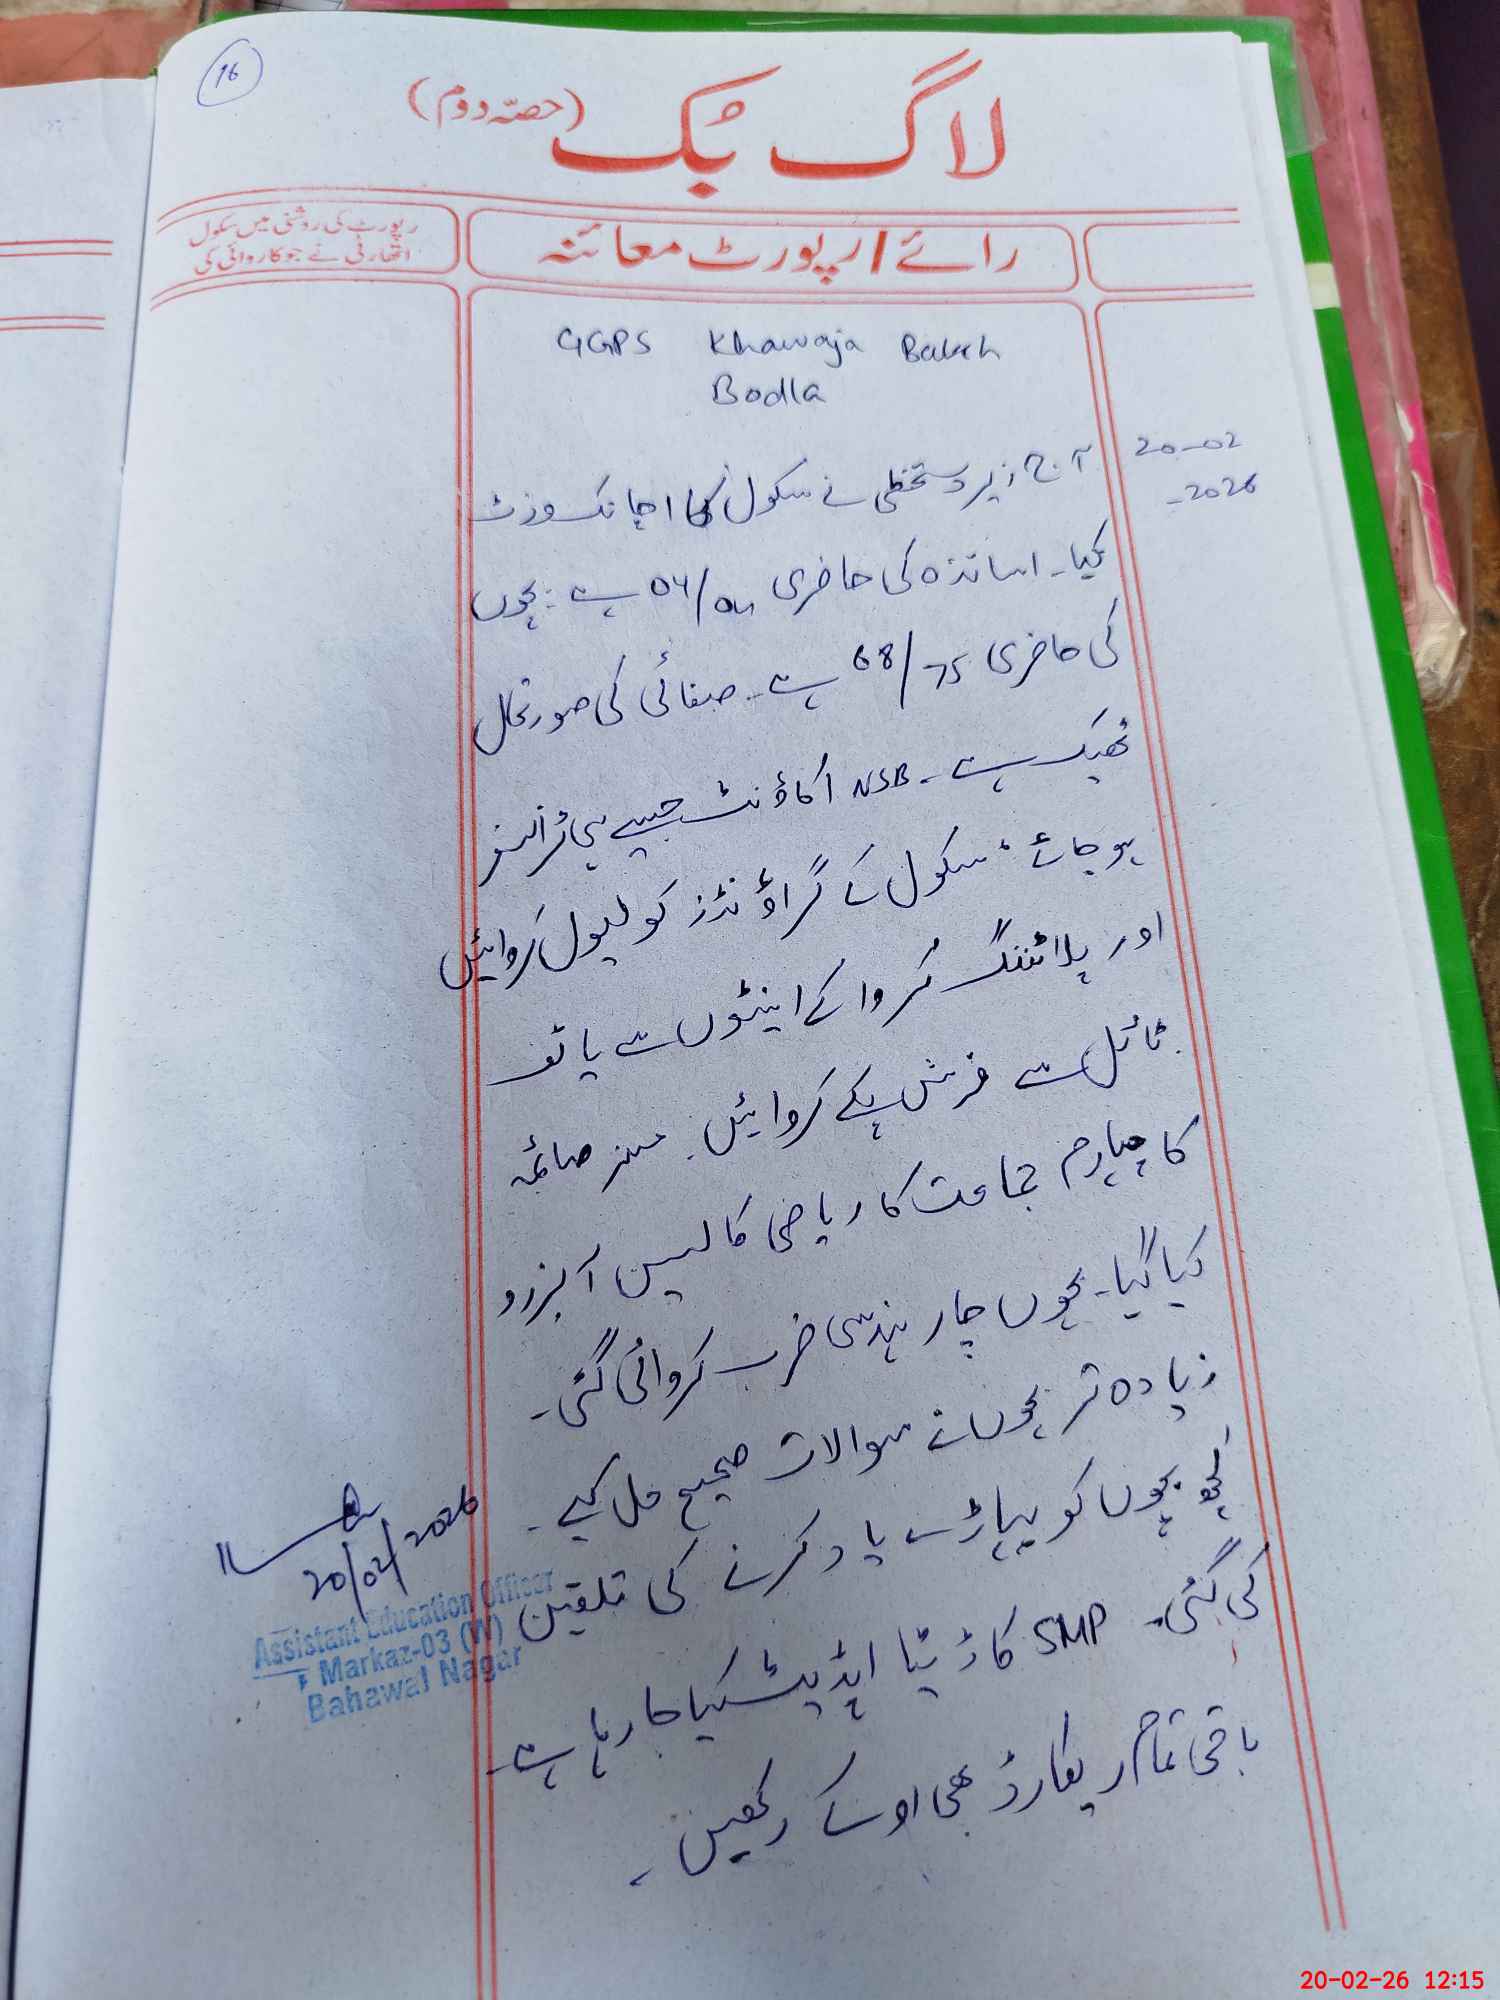 16
لاگ بُک (حصّہ دوم)
رائے / رپورٹ معائنہ
رپورٹ کی روشنی میں سکول
اتھارٹی نے جو کاروائی کی
GGPS Khawaja Baksh
Bodla
20-02
-2026
آج زیر دستخطی نے سکول کا اچانک وزٹ
کیا۔ اساتذہ کی حاضری 04/04 ہے۔ بچوں
کی حاضری 68/75 ہے۔ صفائی کی صورتحال
ٹھیک ہے۔ NSB اکاؤنٹ جیسے ہی ٹرانسفر
ہو جائے، سکول کے گراؤنڈز کو لیول کروائیں
اور پلاننگ کروا کے اینٹوں سے یا ٹف
ٹائل سے فرش پکے کروائیں۔ مسز صائمہ
کا چہارم جماعت کا ریاضی کا لیسن آبزرو
کیا گیا۔ بچوں چار ہندسی ضرب کروائی گئی۔
زیادہ تر بچوں نے سوالات صحیح حل کیے۔
کچھ بچوں کو پہاڑے یاد کرنے کی تلقین
کی گئی۔ SMP کا ڈیٹا اپڈیٹ کیا جا رہا ہے۔
باقی تمام ریکارڈ بھی اوکے رکھیں۔
20/02/2026
Assistant Education Officer
Markaz-03 (W)
Bahawal Nagar
20-02-26 12:15